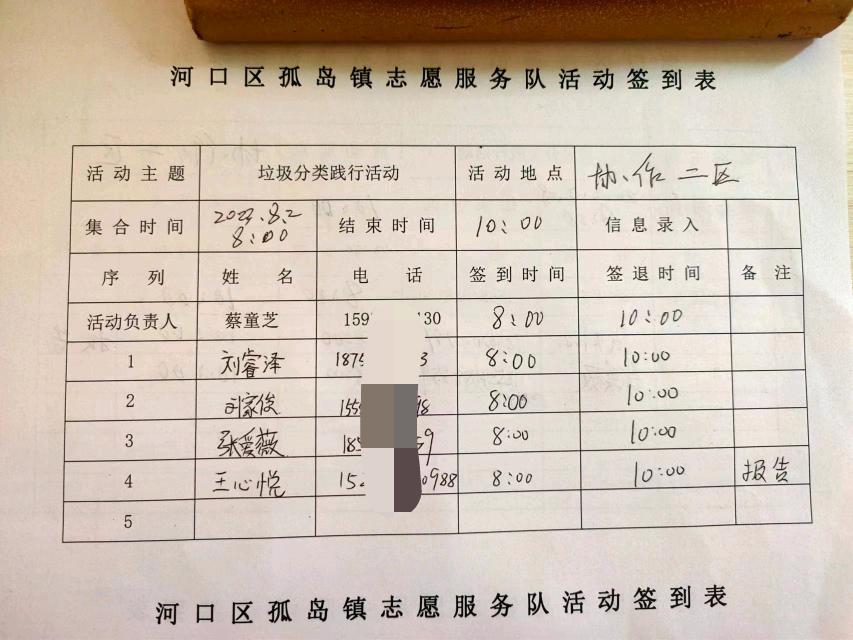 河口区孤岛镇志愿服务队活动签到表
活动主题 垃圾分类践行活动 活动地点 协作二区
集合时间 2023.8.2 8:00 结束时间 10:00 信息录入
序列 姓名 电话 签到时间 签退时间 备注
活动负责人 蔡童芝 159 130 8:00 10:00
1 刘睿泽 187 3 8:00 10:00
2 刘家俊 155 98 8:00 10:00
3 张爱薇 18 59 8:00 10:00
4 王心悦 152 0988 8:00 10:00 报告
5
河口区孤岛镇志愿服务队活动签到表